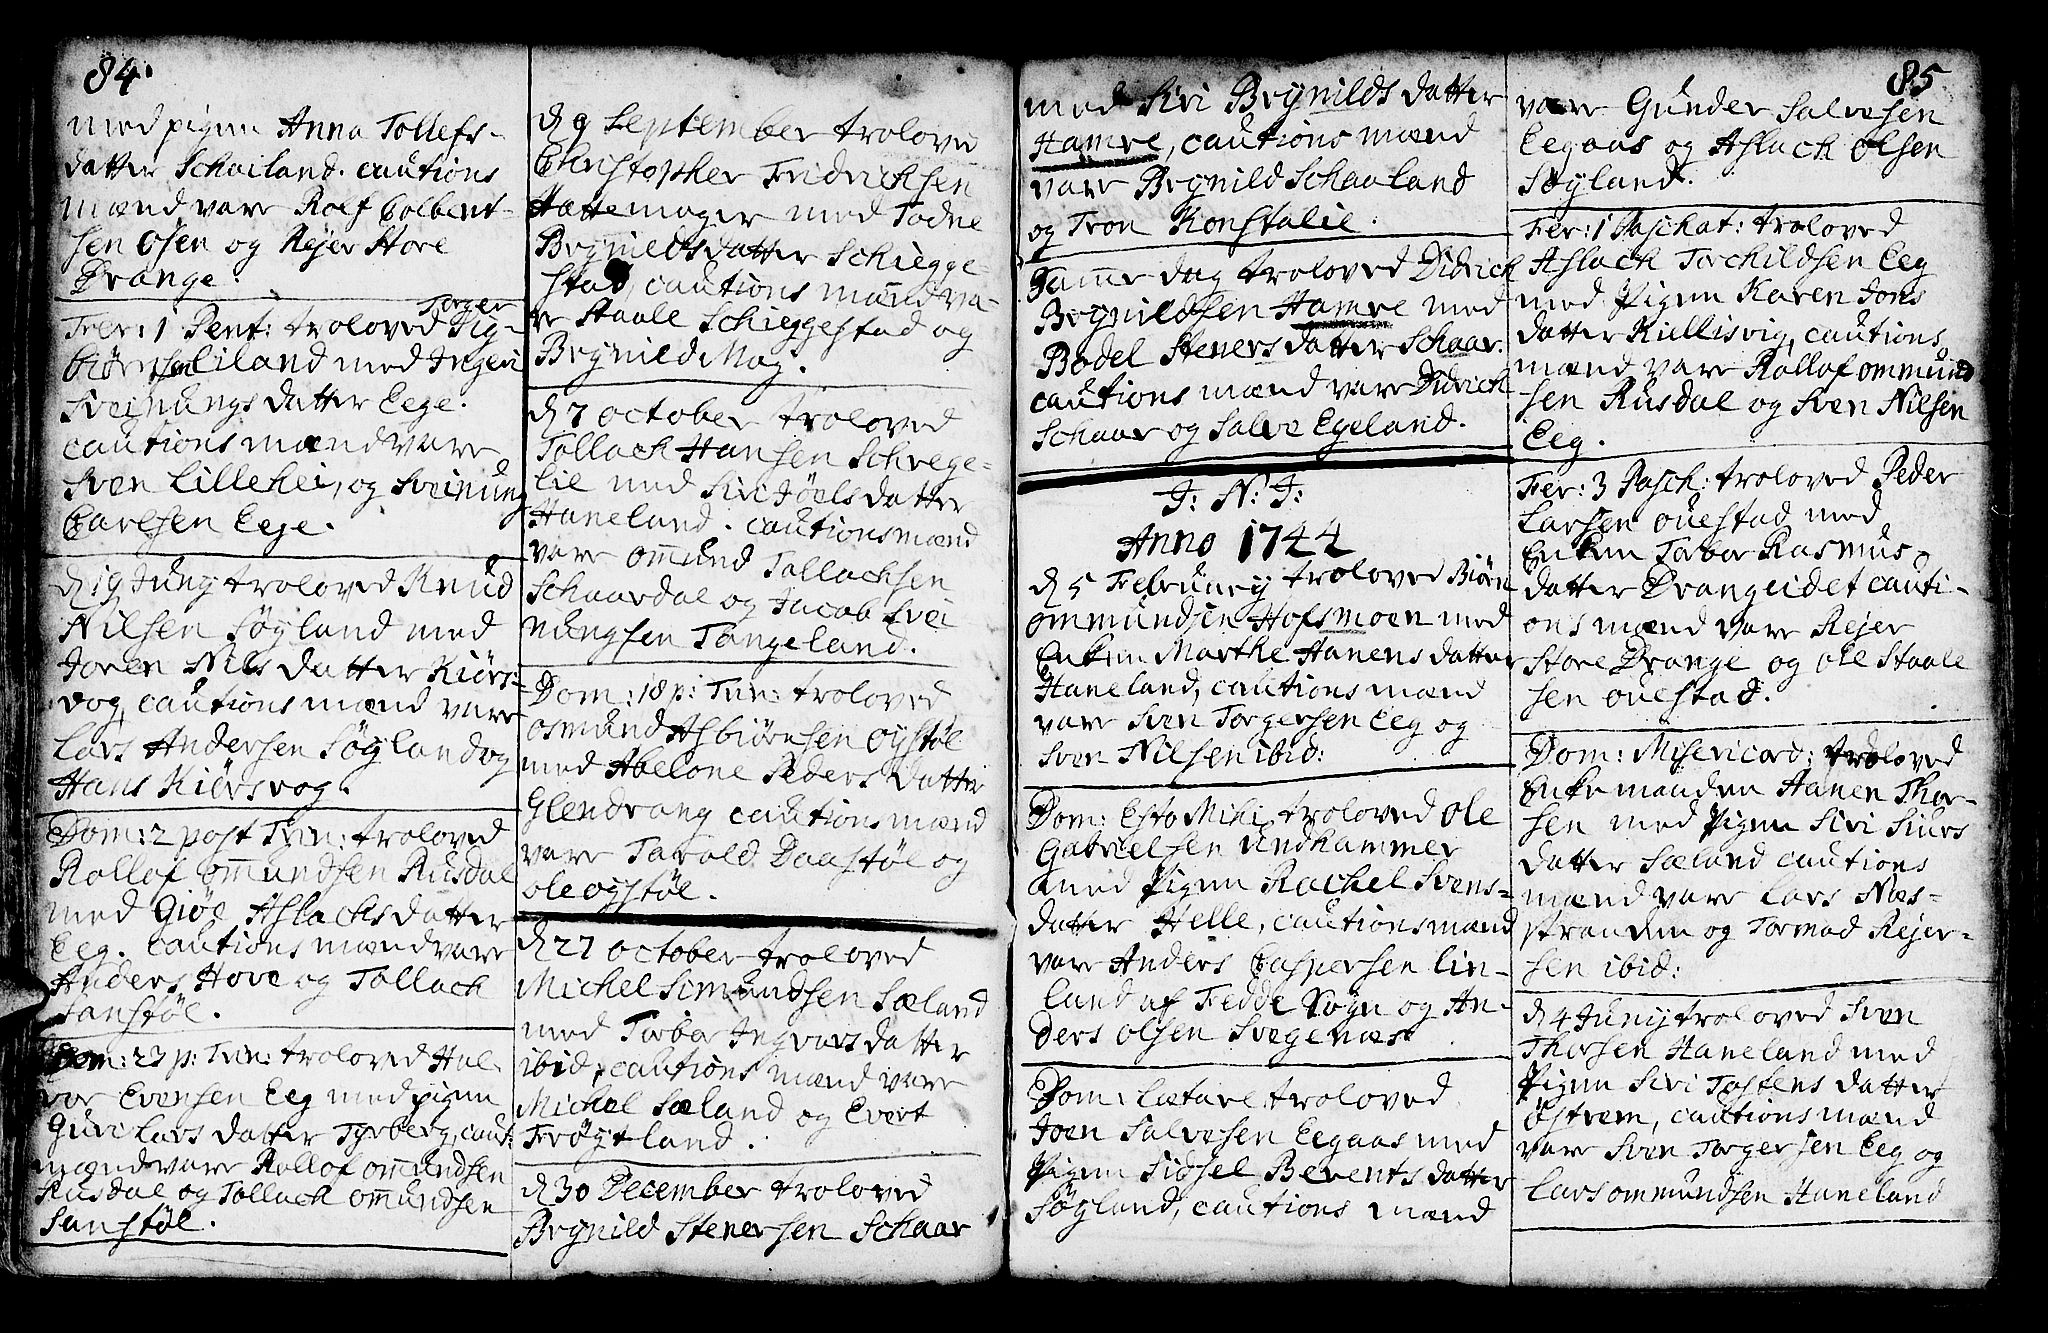 84.
med pigen Anna Tollefs-
datter Schailand. cautions
mænd vare Roef Colbent-
sen Osen og Rejer Store
Drange.
Torger
Fer: 1 Pent: troloved Aes-
biørnsen Liland med Ingeri
Sveinungs datter Eege.
cautions mænd vare
Sven Lillehei, og Sveinung
Carlsen Eege.
d 19 Juny troloved Knud
Nilsen Søyland med
Joren Nils datter Kiørs-
vog, cautions mænd vare
Lars Andersen Søyland og
Hans Kiørsvog.
Dom: 2 post Trin: troloved
Rollof Om̄undsen Rusdal
med Giøe Aslachs datter
Eeg. cautions mænd vare
Anders Hove og Tollach
Sanstøl.
Dom: 23 p: Trin: troloved Hal-
vor Evensen Eeg med pigen
Guri Lars datter Tyrberg, caut:
mænd vare Rollof Om̄undsen
Rusdal og Tollach Om̄undsen
Sanstøl.
d 9 September troloved
Christopher Fridrichsen
Hattemager med Todne
Brynilds datter Schiegge-
stad, cautions mænd va-
re Staale Schieggestad og
Brynild Mog.
d 7 October troloved
Tollach Hansen Schrege-
lie med Siri Joels datter
Haneland. cautions mænd
vare Om̄und Tollachsen
Schaardal og Jacob Svei
nungsen Tangeland.
Dom: 18 p: Trin: troloved
Osmund Asbiørnsen Oystøl
med Abelone Peders datter
Glendrang cautions mænd
vare Tarald Daastøl og
Ole Oystøl.
d 27 October troloved
Michel Simundsen Sæland
med Torbor Ingvars datter
ibid, cautions mænd vare
Michel Sæland og Evert
Frøytland.
d 30 December troloved
Brynild Stenersen Schaar
85
med Siri Brynilds datter
Hamre, cautions mænd
vare Brynild Schaaland
og Tron Konstalie.
Sam̄e dag troloved Didrich
Brynildsen Hamre med
Bodel Steners datter Schaar.
cautions mænd vare Didrich
Schaar og Salve Egeland.
J: N: J:
Anno 1744
d 5 February troloved Biørn
Ommundsen Hofsmoen med
Enken Marthe Hanens datter
Haneland, cautions mænd
vare Sven Torgersen Eeg og
Sven Nilsen ibid:
Dom: Esto Mihi troloved Ole
Gabrielsen Undhammer
med Pigen Rachel Svens-
datter Helle, cautions mænd
vare Anders Caspersen Lin-
land af Fedde Sogn og An-
ders Olsen Svegenæs
Dom: Lætare troloved
Joen Salvesen Eegaas med
Pigen Sidsel Berents datter
Søyland, cautions mænd
vare Gunder Salvesen
Eegaas og Aslach Olsen
Søyland.
Fer: 1 Paschat: troloved
Aslach Torchildsen Eeg
med Pigen Karen Jons
datter Kullisvig, cautions
mænd vare Rollof Ommund
sen Rusdal og Sven Nilsen
Eeg.
Fer: 3 Pasch: troloved Peder
Larsen Ouestad med
Enken Torbor Rasmus-
datter Drangeidet cauti-
ons mænd vare Rejer
Store Drange og Ole Staale
sen Ouestad.
Dom: Misericord: troloved
Enkemanden Hanen Thor-
sen med Pigen Siri Siurs
datter Sæland cautions
mænd vare Lars Næs-
stranden og Tormod Rejer-
sen ibid:
d 4 Juny troloved Sven
Thorsen Haneland med
Pigen Siri Tostens datter
Østrem, cautions mænd
vare Sven Torgersen Eeg og
Lars Ommundsen Haneland